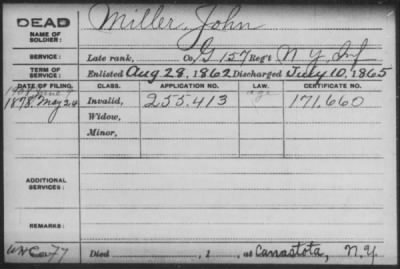 DEAD Miller, John
NAME OF SOLDIER:
SERVICE: Late rank, Co. G 157 Reg't N.Y. Inf
TERM OF SERVICE: Enlisted Aug 28, 1862 Discharged July 10, 1865
DATE OF FILING. CLASS. APPLICATION NO. LAW. CERTIFICATE NO.
1878, May 24 Invalid, 255.413 171.660
Widow,
Minor,
ADDITIONAL SERVICES:
REMARKS:
77 Died , 1 , at Canastota, N.Y.